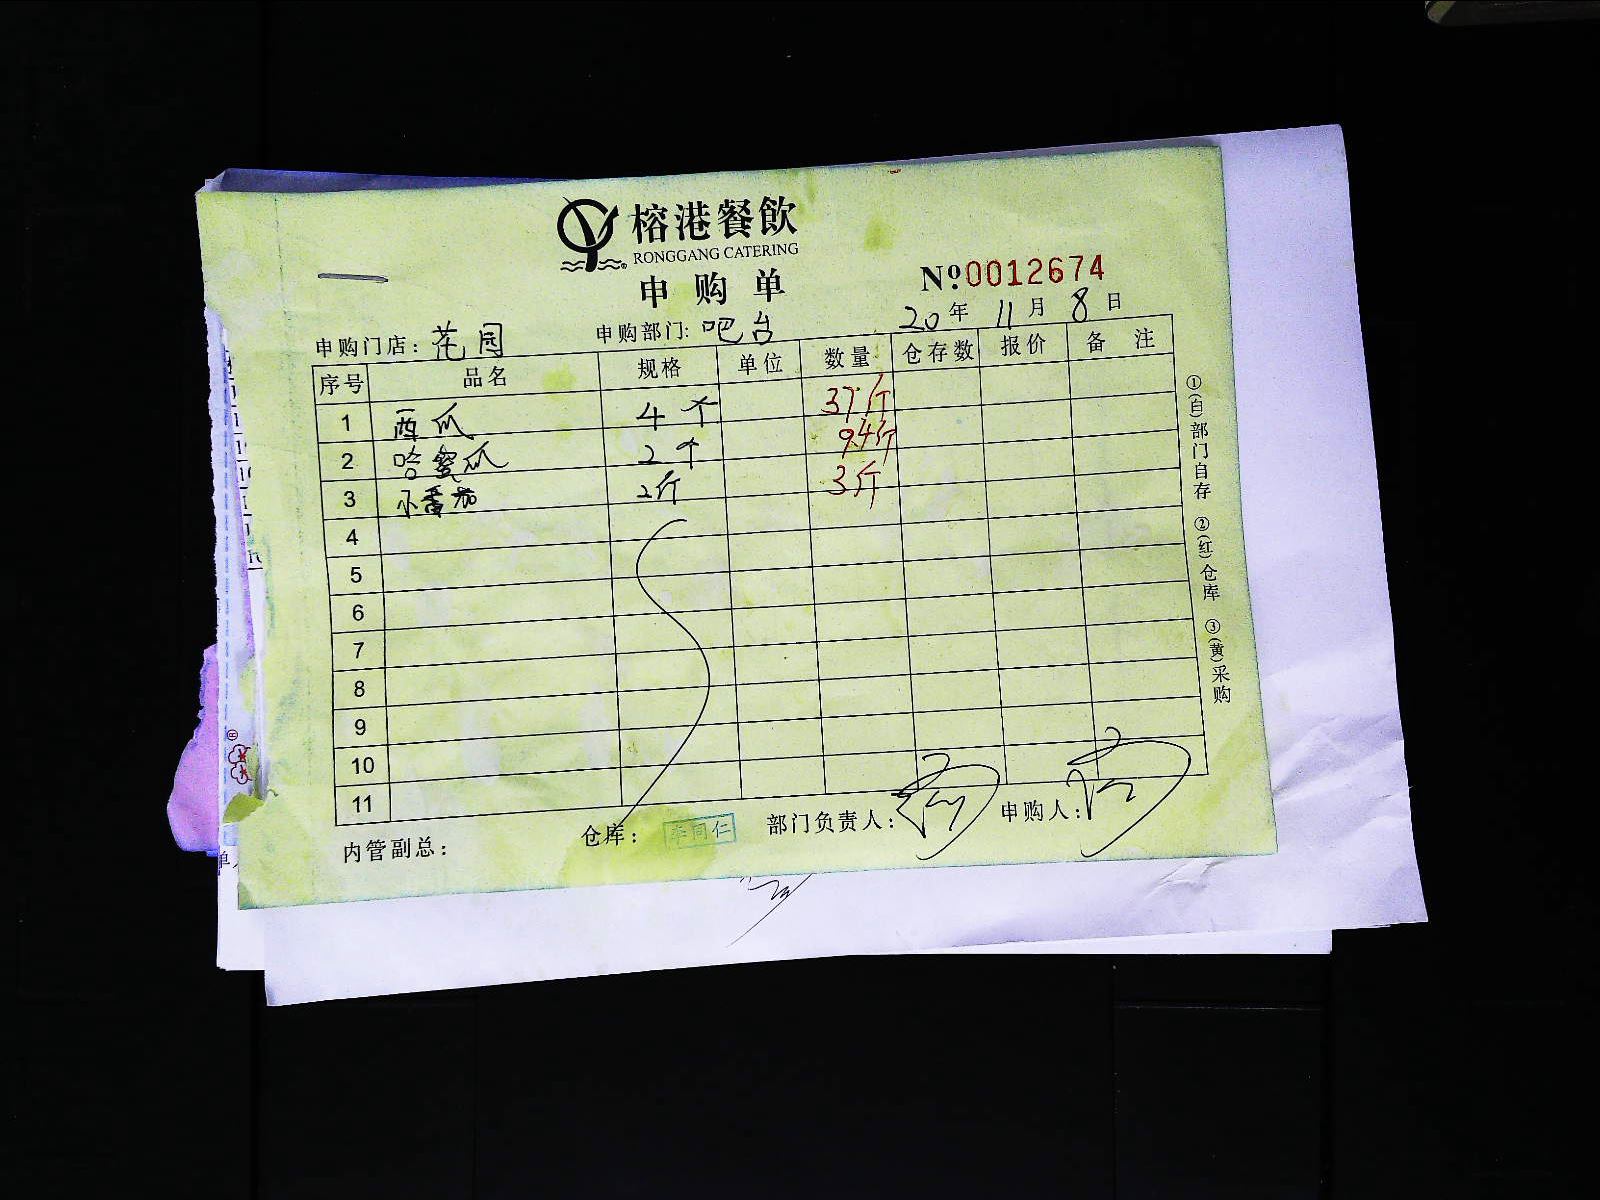 榕港餐飲
RONGGANG CATERING
申购单
№:0012674
20年 11月 8日
申购门店: 花园 申购部门: 吧台
序号 品名 规格 单位 数量 仓存数 报价 备注
1 西瓜 4个 37斤
2 哈蜜瓜 2个 9.4斤
3 小番茄 2斤 3斤
4
5
6
7
8
9
10
11
内管副总: 仓库: 李同仁 部门负责人: 申购人:
①(白)部门自存 ②(红)仓库 ③(黄)采购